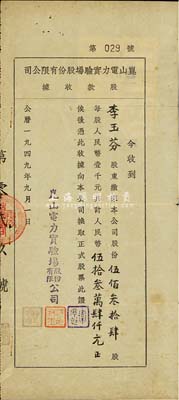 第 029 號
崑山電力實驗場股份有限公司
股款收據
今收到
李玉芬 股東繳到本公司股份 伍佰叁拾肆 股
每股人民幣壹千元 計人民幣 伍拾叁萬肆仟元正
俟後憑此收據向本公司換取正式股票此證
崑山電力實驗場股份有限公司
公曆一九四九年九月 日
第 零 號